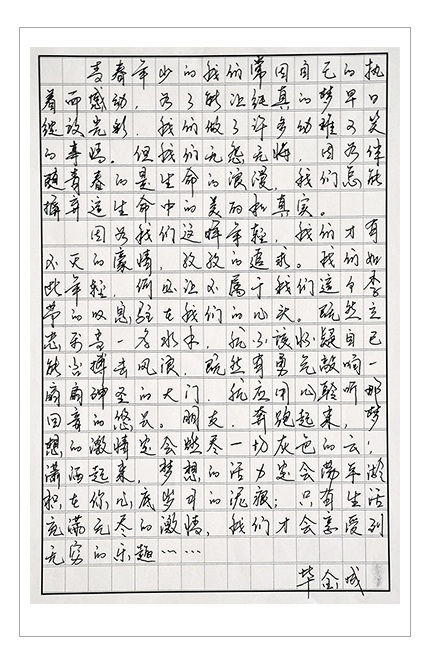 青春年少的我们常因自己的执
着而感动，为了能让纯真的梦早日
绽放光彩，我们做了许多幼稚可笑
的事吗。但我们无怨无悔，因为伴
随青春的是生命的浪漫，我们怎能
摒弃这生命中的美丽和真实。
因为我们这样年轻，我们才有
不灭的豪情，孜孜的追求。我们如
此年轻，何必让不属于我们这个季
节的叹息驻在我们的心头。既然立
志乐当一名水手，就不该怀疑自己
能否搏击风浪，既然有勇气敲响一
扇扇神圣的大门，就应用心聆听那
回音的悠长。朋友，奔跑起来，梦
想的激情定会燃尽一切灰色的云；
潇洒起来，梦想的活力定会荡平淤
积在你心底岁月的泥痕；只有生活
充满无尽的激情，我们才会享受到
无穷的乐趣……
毕金成